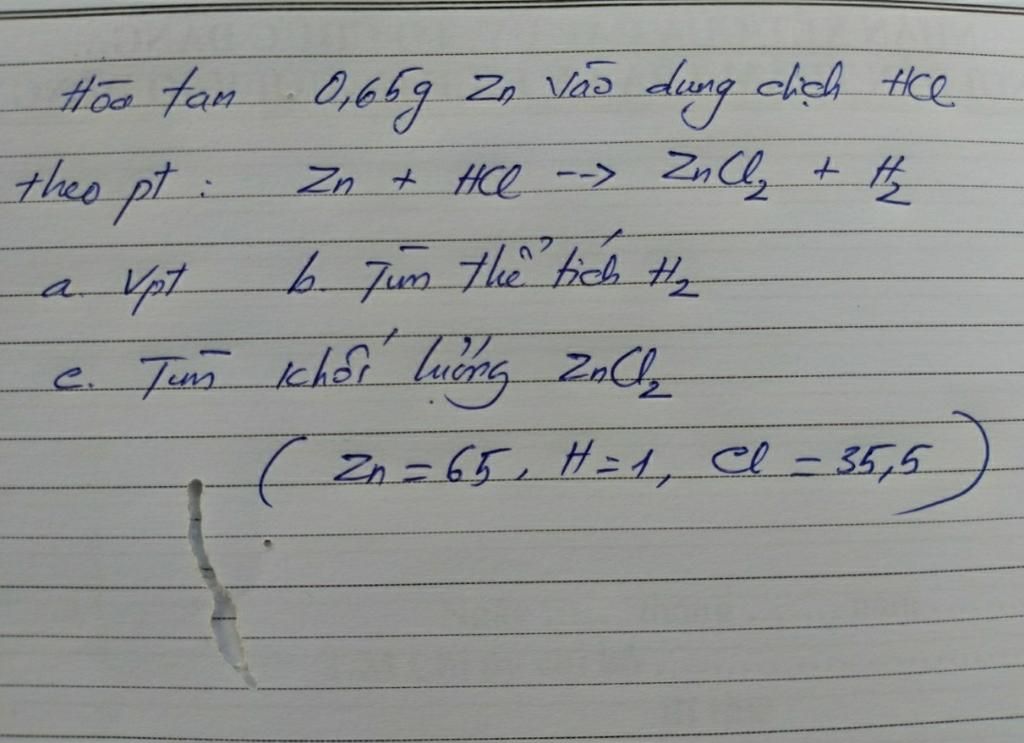 Hòa tan 0,65g Zn vào dung dịch HCl
theo pt: Zn + HCl --> ZnCl₂ + H₂
a. Vpt b. Tìm thể tích H₂
c. Tìm khối lượng ZnCl₂
(Zn = 65, H = 1, Cl = 35,5)